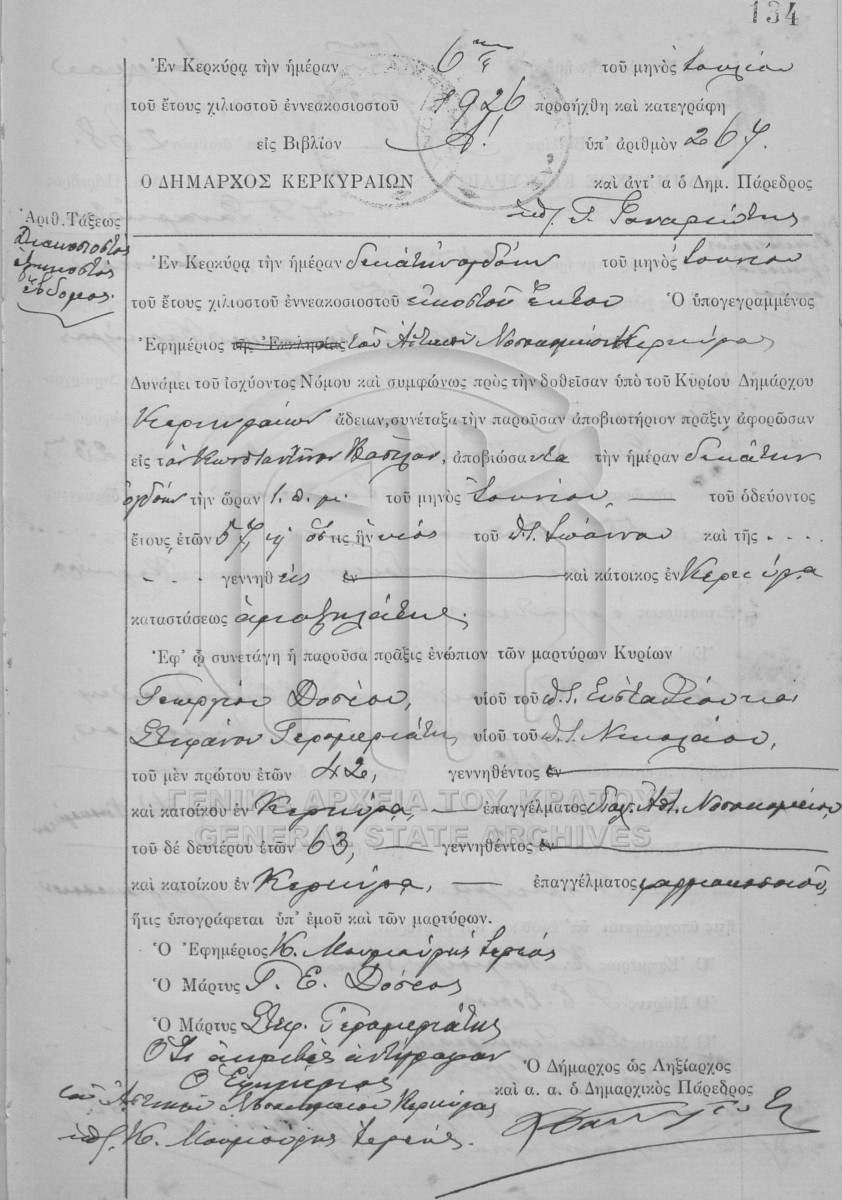 134
Ἐν Κερκύρᾳ τὴν ἡμέραν 6ην τοῦ μηνὸς Ἰουλίου
τοῦ ἔτους χιλιοστοῦ ἐννεακοσιοστοῦ 1926 προσήχθη καὶ κατεγράφη
εἰς Βιβλίον Α! ὑπ' ἀριθμὸν 267.
Ο ΔΗΜΑΡΧΟΣ ΚΕΡΚΥΡΑΙΩΝ καὶ ἀντ' α ὁ Δημ. Πάρεδρος
ὑπ. Γ.
Ἀριθ. Τάξεως
Διακοσιοστὸς
ἑξηκοστὸς
ἕβδομος.
Ἐν Κερκύρᾳ τὴν ἡμέραν δεκάτην ὀγδόην τοῦ μηνὸς Ἰουνίου
τοῦ ἔτους χιλιοστοῦ ἐννεακοσιοστοῦ εἰκοστοῦ ἕκτου Ὁ ὑπογεγραμμένος
Ἐφημέριος τῆς Ἐκκλησίας τοῦ Ἀστικοῦ Νοσοκομείου Κερκύρας
Δυνάμει τοῦ ἰσχύοντος Νόμου καὶ συμφώνως πρὸς τὴν δοθεῖσαν ὑπὸ τοῦ Κυρίου Δημάρχου
Κερκυραίων ἄδειαν, συνέταξα τὴν παροῦσαν ἀποβιωτήριον πρᾶξιν ἀφορῶσαν
εἰς τὸν Κωνσταντῖνον, ἀποβιώσαντα τὴν ἡμέραν δεκάτην
ὀγδόην τὴν ὥραν 1. π. μ. τοῦ μηνὸς Ἰουνίου, — τοῦ ὁδεύοντος
ἔτους, ἐτῶν 57, ὅστις ἦν υἱὸς τοῦ π.τ. Ἰωάννου καὶ τῆς . . . .
. . . γεννηθεὶς ἐν — καὶ κάτοικος ἐν Κερκύρᾳ
καταστάσεως ἁμαξηλάτης.
Ἐφ' ᾧ συνετάγη ἡ παροῦσα πρᾶξις ἐνώπιον τῶν μαρτύρων Κυρίων
Γεωργίου Δοσίου, υἱοῦ τοῦ π.τ. Εὐσταθίου καὶ
Στεφάνου Γερομεριάτη, υἱοῦ τοῦ π.τ. Νικολάου,
τοῦ μὲν πρώτου ἐτῶν 42, γεννηθέντος ἐν —
καὶ κατοίκου ἐν Κερκύρᾳ, — ἐπαγγέλματος Ἀστ. Νοσοκομείου,
τοῦ δὲ δευτέρου ἐτῶν 63, — γεννηθέντος ἐν —
καὶ κατοίκου ἐν Κερκύρᾳ, — ἐπαγγέλματος φαρμακοποιοῦ,
ἥτις ὑπογράφεται ὑπ' ἐμοῦ καὶ τῶν μαρτύρων.
Ὁ Ἐφημέριος Κ. Μουμούρης ἱερεύς
Ὁ Μάρτυς Γ. Ε. Δόσιος
Ὁ Μάρτυς Στεφ. Γερομεριάτης
Ὅτι ἀκριβὲς ἀντίγραφον
Ὁ Ἐφημέριος
τοῦ Ἀστικοῦ Νοσοκομείου Κερκύρας
ὑπ. Κ. Μουμούρης ἱερεύς.
Ὁ Δήμαρχος ὡς Ληξίαρχος
καὶ α. α. ὁ Δημαρχικὸς Πάρεδρος
ΓΕΝΙΚΑ ΑΡΧΕΙΑ ΤΟΥ ΚΡΑΤΟΥΣ
GENERAL STATE ARCHIVES